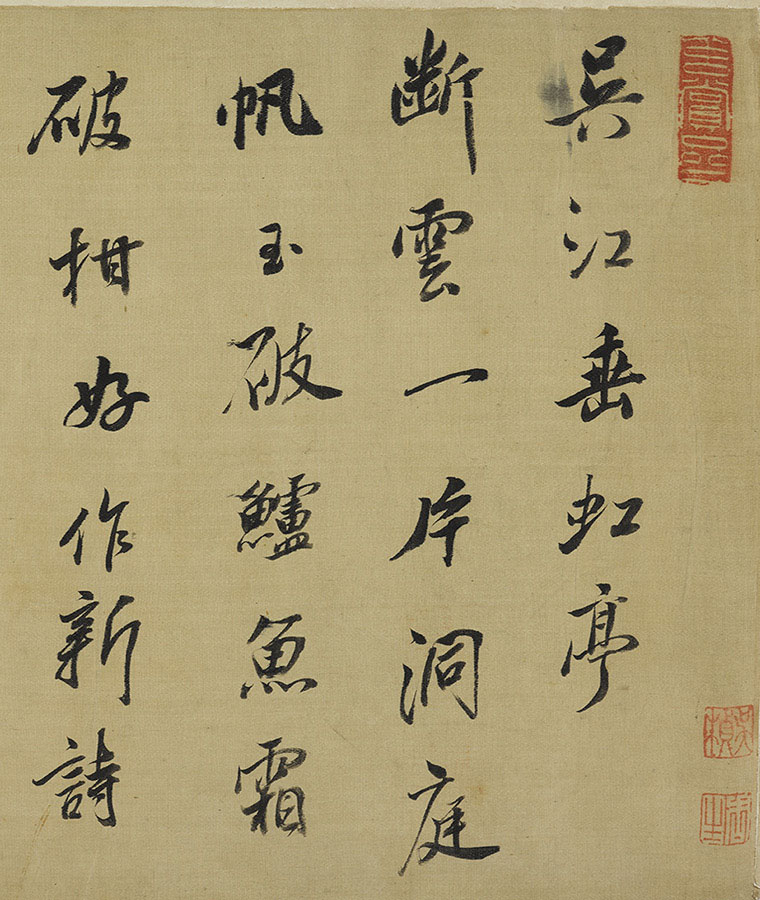 吳江垂虹亭
斷雲一片洞庭
帆玉破鱸魚霜
破柑好作新詩